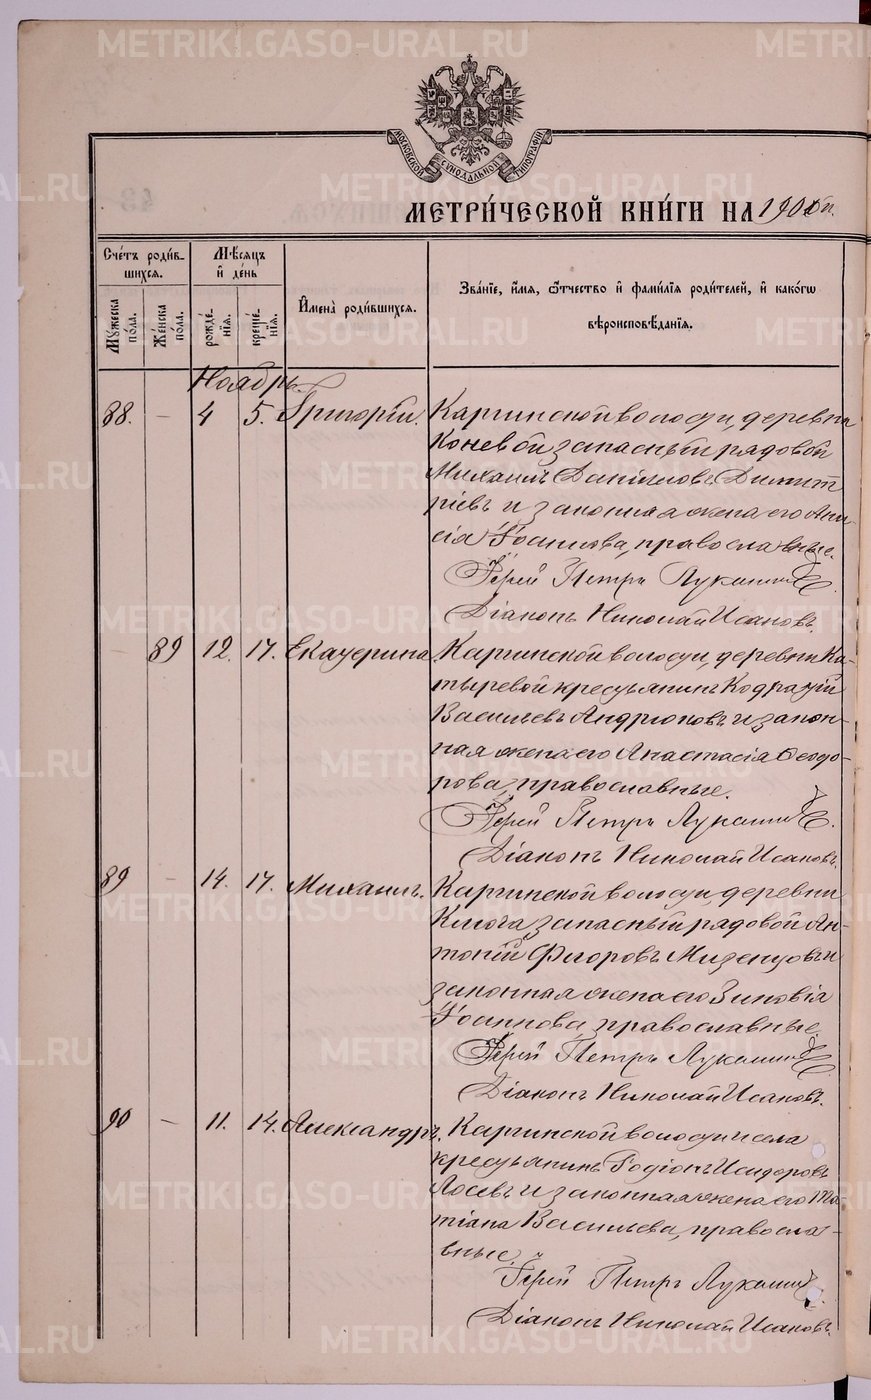 МОСКОВСКОЙ СѴНОДАЛЬНОЙ ТИПОГРАФІИ
МЕТРИ́ЧЕСКОЙ КНИ́ГИ НА 1901
Сче́тъ роди́в-
шихся.
Мѣ́сяцъ
и҆ де́нь
И҆мена̀ роди́вшихся.
Зва́нїе, и҆́мя, ѻ҆́тчество и҆ фами́лїя роди́телей, и҆ како́гѡ
вѣроисповѣ́данїя.
Мꙋ́жеска по́ла.
Же́нска по́ла.
рожде́нїя.
креще́нїя.
Ноябрь.
88. — 4 5. Григорій. Каргинской волости, деревни
Коневой запасный рядовой
Михаилъ Даніиловъ Димит
ріевъ и законная жена его Ани
сія Іоаннова, православные.
Іерей Петръ Лукашинъ.
Діаконъ Николай Исаковъ.
— 89 12. 17. Екатерина. Каргинской волости, деревни Ка-
тыревой крестьянинъ Кодратій
Васильевъ Андрюковъ и закон-
ная жена его Анастасія Ѳеодо-
рова, православные.
Іерей Петръ Лукашинъ.
Діаконъ Николай Исаковъ.
89 — 14. 17. Михаилъ. Каргинской волости, деревни
Ключа запасный рядовой Ан-
тоній Флоровъ Мизенцовъ и
законная жена его Зиновія
Іоаннова, православные.
Іерей Петръ Лукашинъ.
Діаконъ Николай Исаковъ.
90 — 11. 14. Александръ. Каргинской волости и села
крестьянинъ Родіонъ Исидоровъ
Лосевъ и законная жена его Та-
тіана Васильева, правосла-
вные.
Іерей Петръ Лукашинъ.
Діаконъ Николай Исаковъ.
METRIKI.GASO-URAL.RU